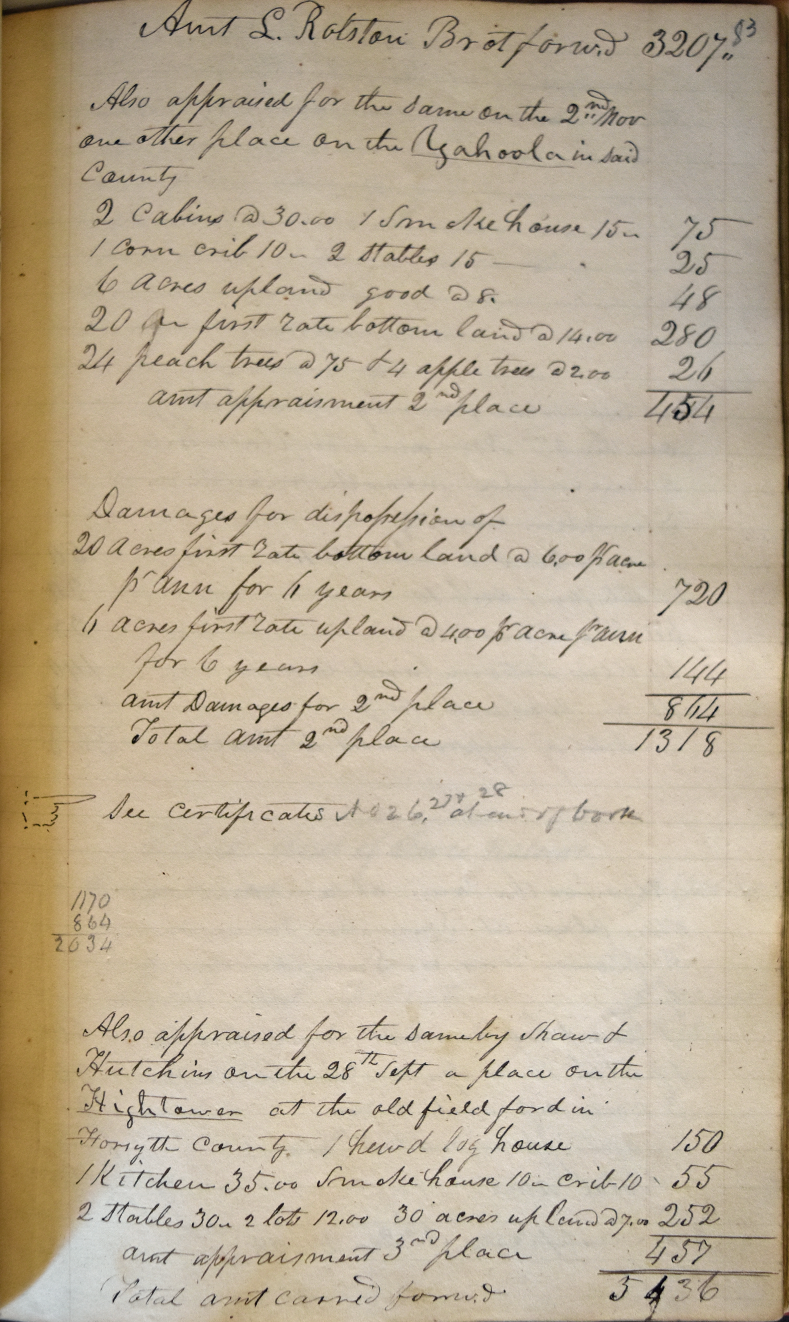 Amt L. Rolston Brot forwd 3207.. 53
Also appraised for the same on the 2nd Nov
one other place on the Yahoola in said
County
2 Cabins @ 30.00 1 Smoke house 15.. 75
1 corn crib 10.. 2 Stables 15 — 25
6 Acres upland good @ 8. 48
20 Do first rate bottom land @ 14.00 280
24 peach trees @ 75 & 4 apple trees @ 2.00 26
amt appraisment 2nd place 454
Damages for dispossession of
20 Acres first rate bottom land @ 6.00 pr acre
pr ann for 6 years 720
6 acres first rate upland @ 4.00 pr acre pr ann
for 6 years 144
amt Damages for 2nd place 864
Total amt 2nd place 1318
See certificates No 26, 27 & 28 at end of book
1170
864
2034
Also appraised for the same by Shaw &
Hutchins on the 28th Sept a place on the
Hightower at the old field ford in
Forsyth County 1 hewd log house 150
1 Kitchen 35.00 Smoke house 10.. crib 10 - 55
2 Stables 30.. 2 lots 12.00 30 acres upland @ 7.00 252
amt appraisment 3rd place 457
Total amt carred forwd 5 36